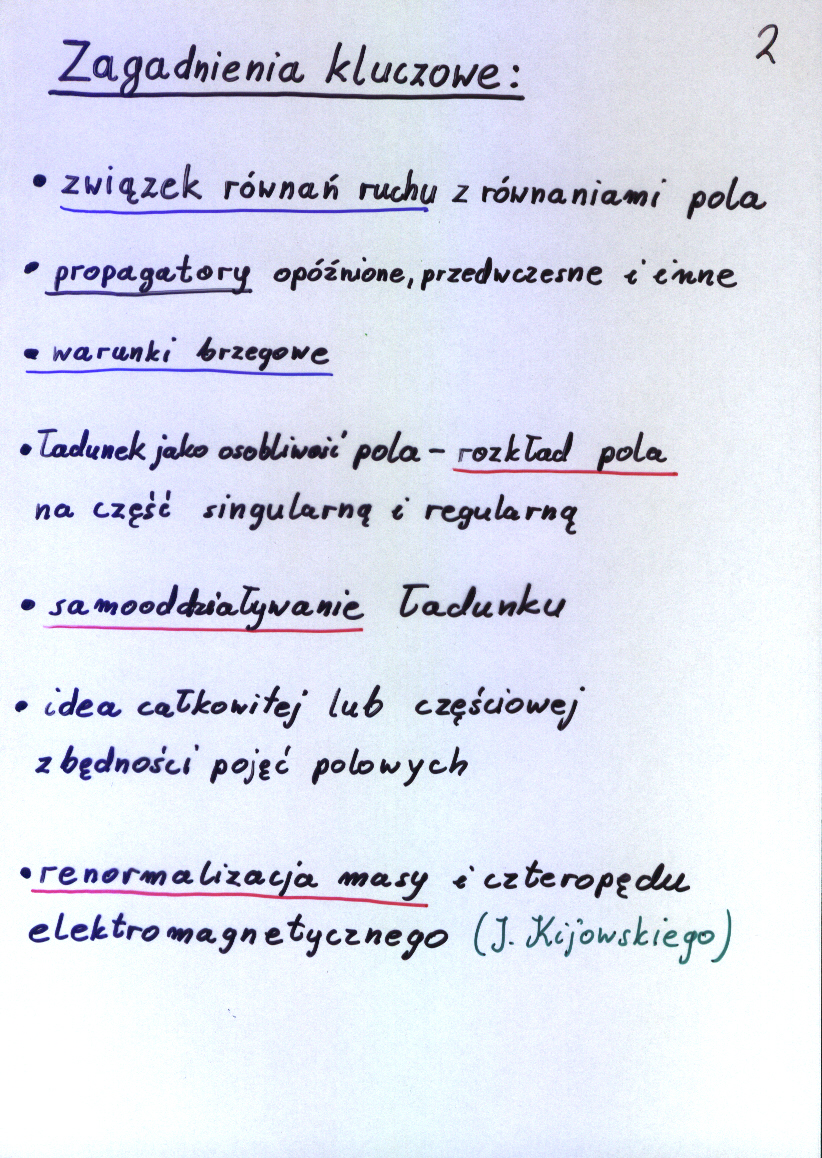 2
Zagadnienia kluczowe:
• związek równań ruchu z równaniami pola
• propagatory opóźnione, przedwczesne i inne
• warunki brzegowe
• ładunek jako osobliwość pola – rozkład pola
na część singularną i regularną
• samooddziaływanie ładunku
• idea całkowitej lub częściowej
zbędności pojęć polowych
• renormalizacja masy i czteropędu
elektromagnetycznego (J. Kijowskiego)